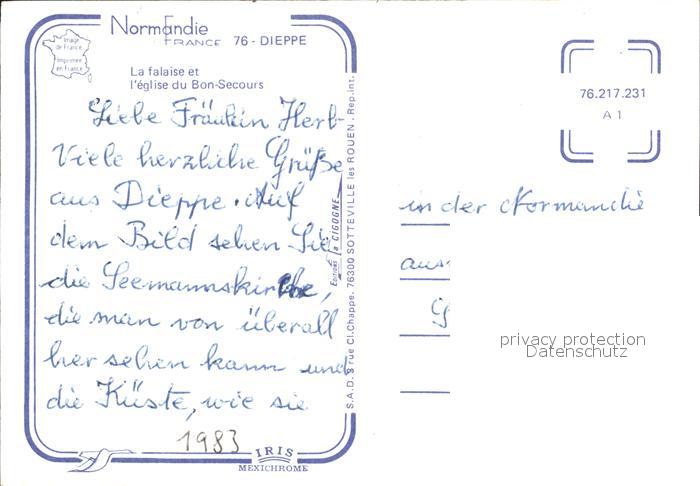 Normandie
FRANCE 76 - DIEPPE
Image
de France
Imprimée
en France
La falaise et
l'église du Bon-Secours
Liebe Fräulein Herb-
Viele herzliche Grüße
aus Dieppe. Auf
dem Bild sehen Sie
die Seemannskirche,
die man von überall
her sehen kann und
die Küste, wie sie
1983
IRIS
MEXICHROME
Editions la CIGOGNE
S.A.D. 3 rue Cl. Chappe. 76300 SOTTEVILLE les ROUEN - Rep. int.
76.217.231
A 1
in der Normandie
aus
privacy protection
Datenschutz